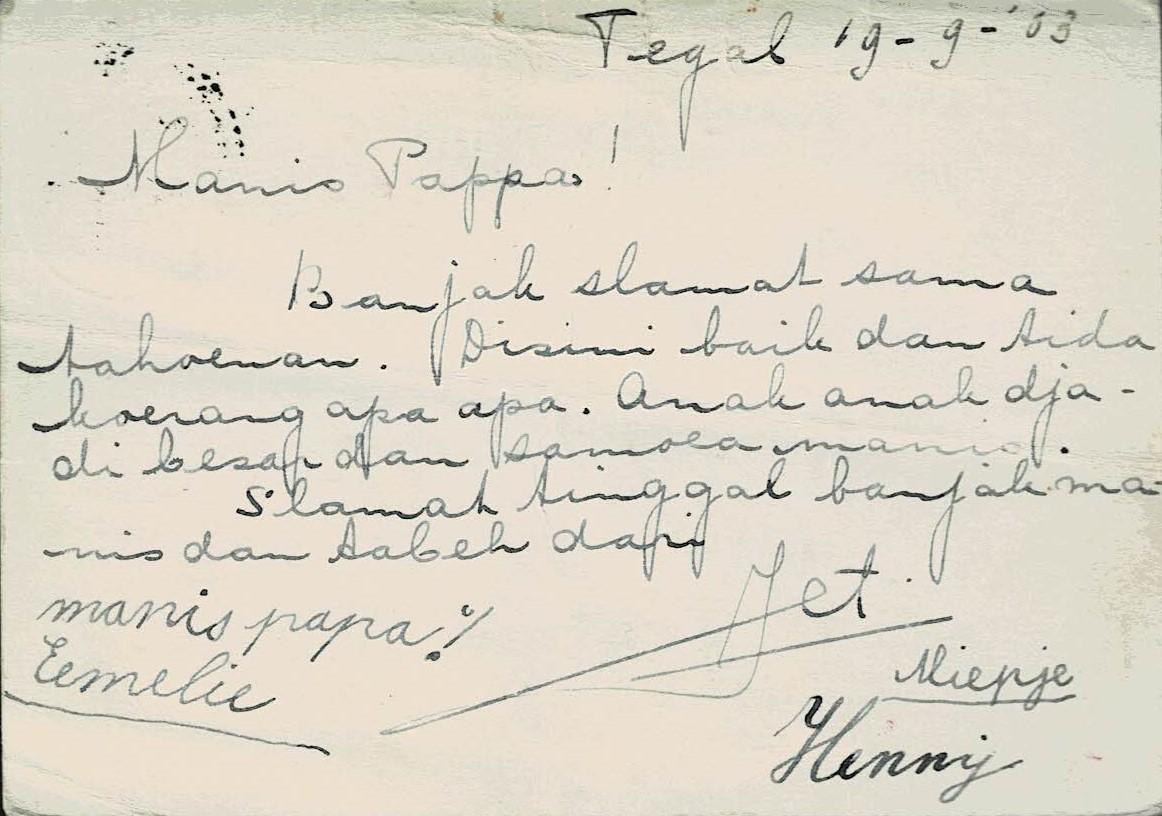 Tegal 19-9-'03
Manis Pappa!
Banjak slamat sama
tahoenan. Disini baik dan tida
koerang apa apa. Anak anak dja-
di besar dan samoea manis.
Slamat tinggal banjak ma-
nis dan tabeh dari
Jet
manis papa!
Eemelie
Miepje
Henny